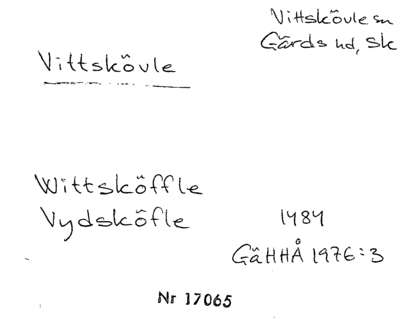 Vittskövle sn
Gärds hd, Sk
Vittskövle
Wittsköffle
Vydsköfle 1484
GäHHÅ 1976:3
Nr 17065